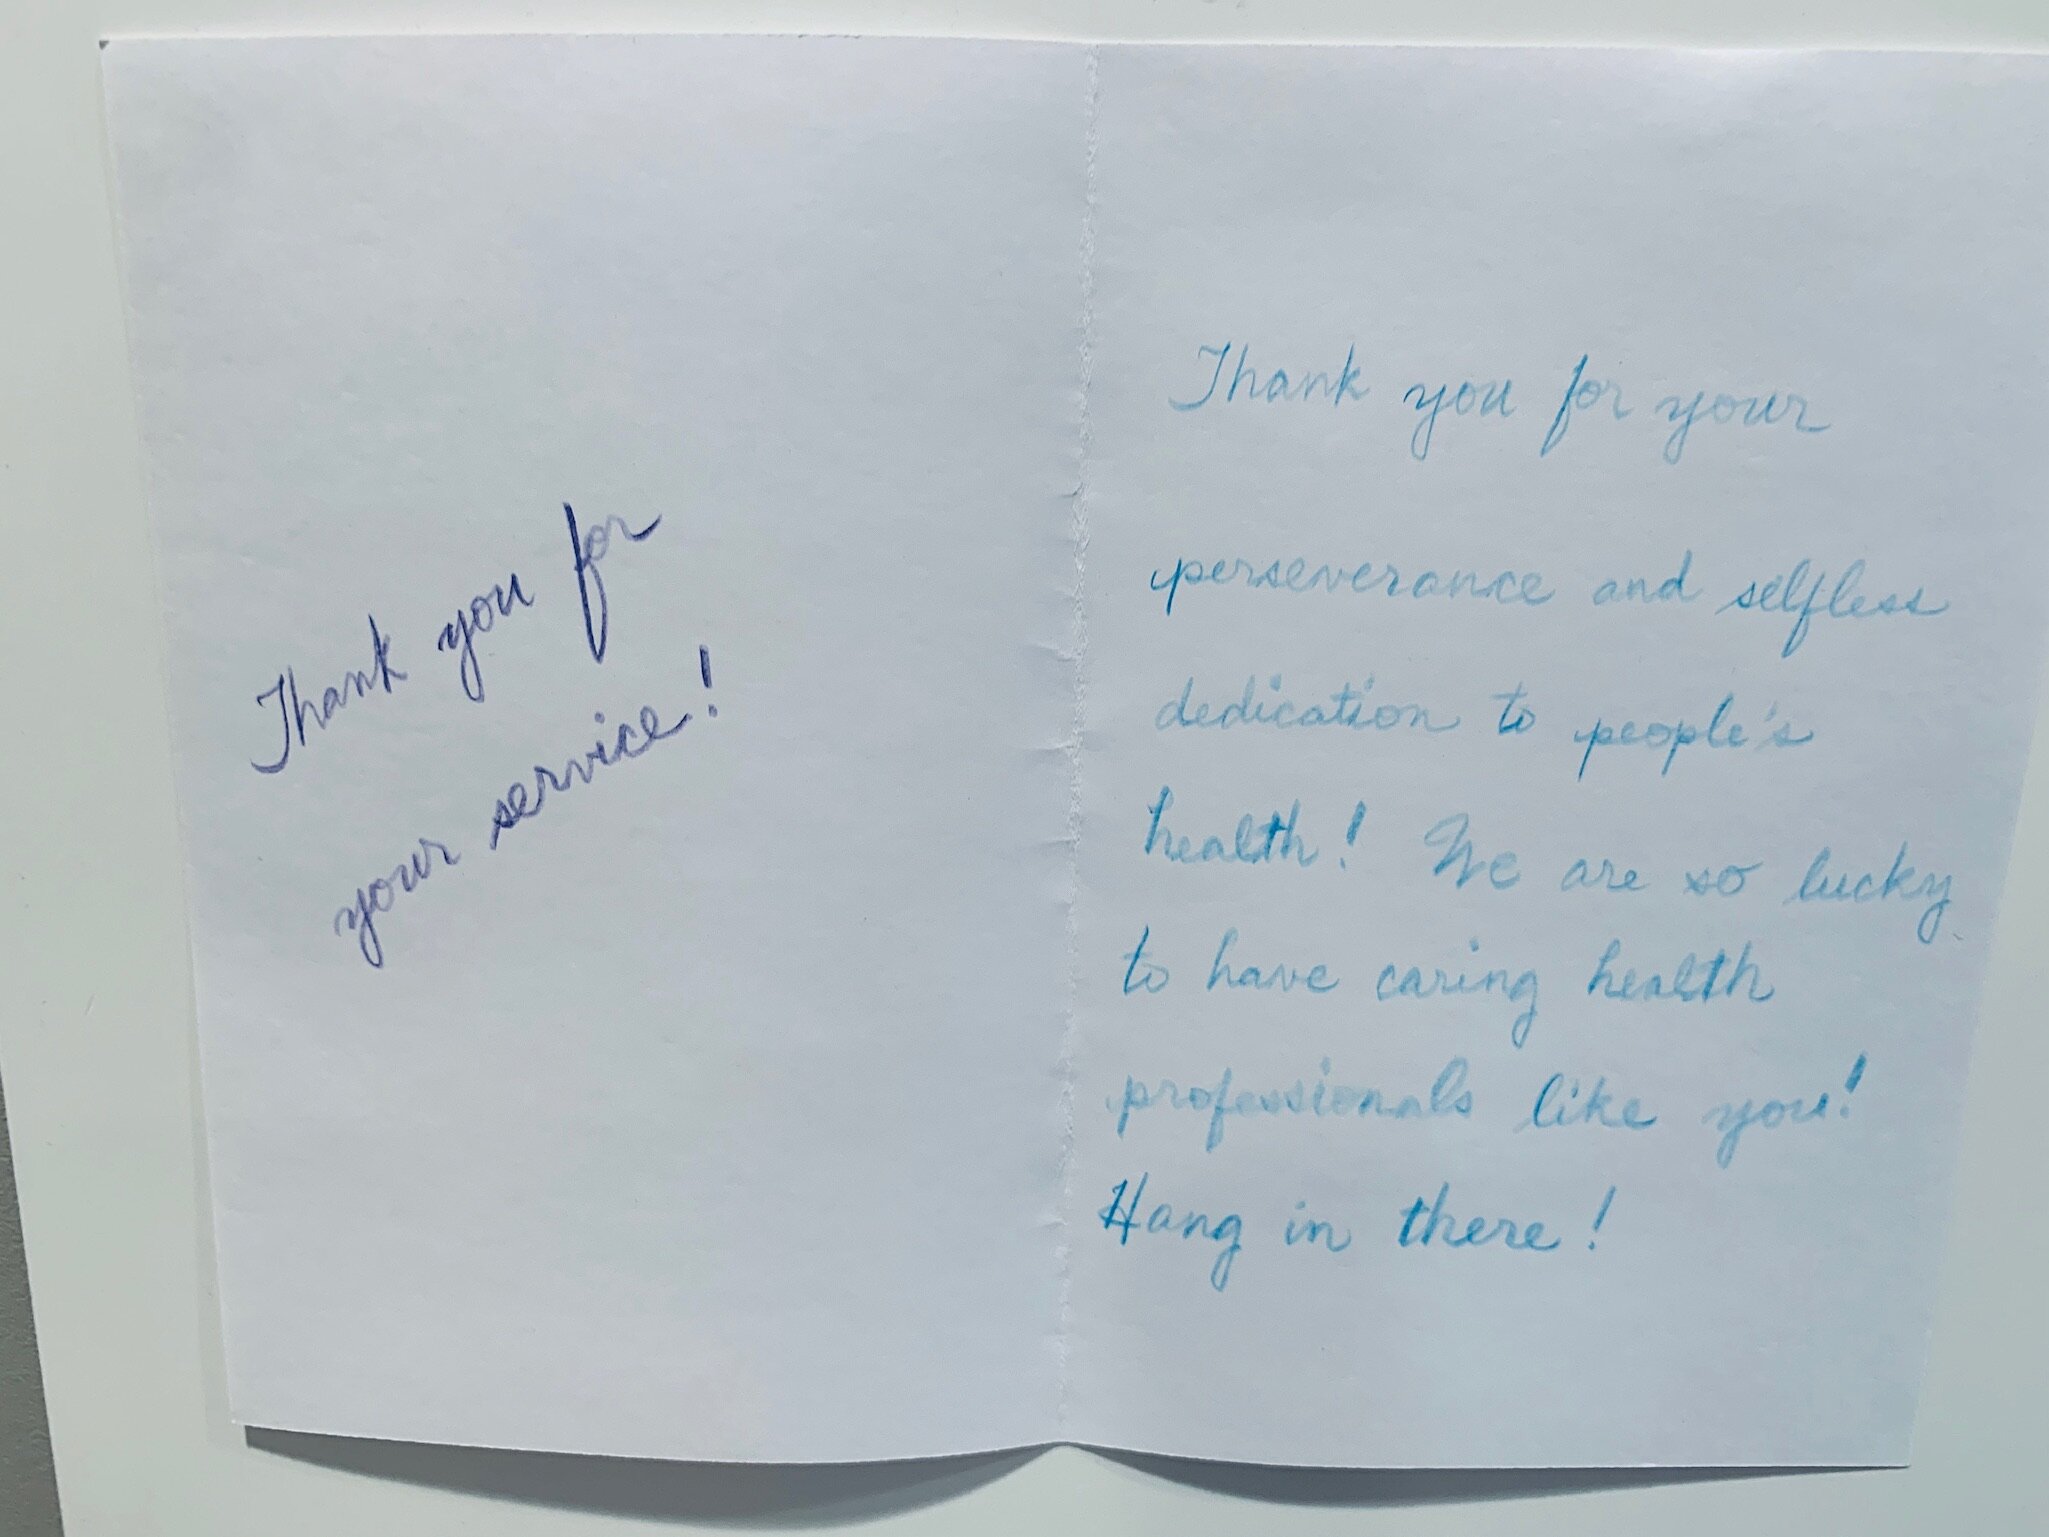 Thank you for
your service!
Thank you for your
perseverance and selfless
dedication to people's
health! We are so lucky
to have caring health
professionals like you!
Hang in there!